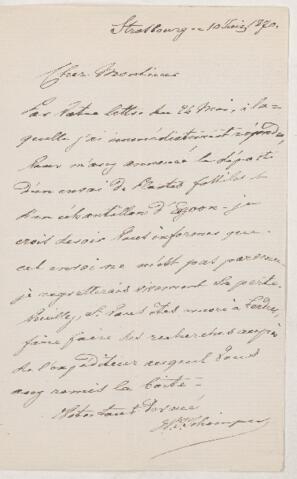 Strasbourg 10 Juin 1870.
Cher Monsieur
Par votre lettre du 24 Mai, à la-
quelle j'ai immédiatement répondu,
vous m'avez annoncé le départ
d'un envoi de plantes fossiles &
d'un échantillon d'Eozoon. je
crois devoir vous informer que
cet envoi ne m'est pas parvenu
je regretterais vivement sa perte.
Veuillez, si vous êtes encore à
faire faire des recherches auprès
de l'expéditeur auquel vous
avez remis la boîte.
Votre tout dévoué
W. Schimper